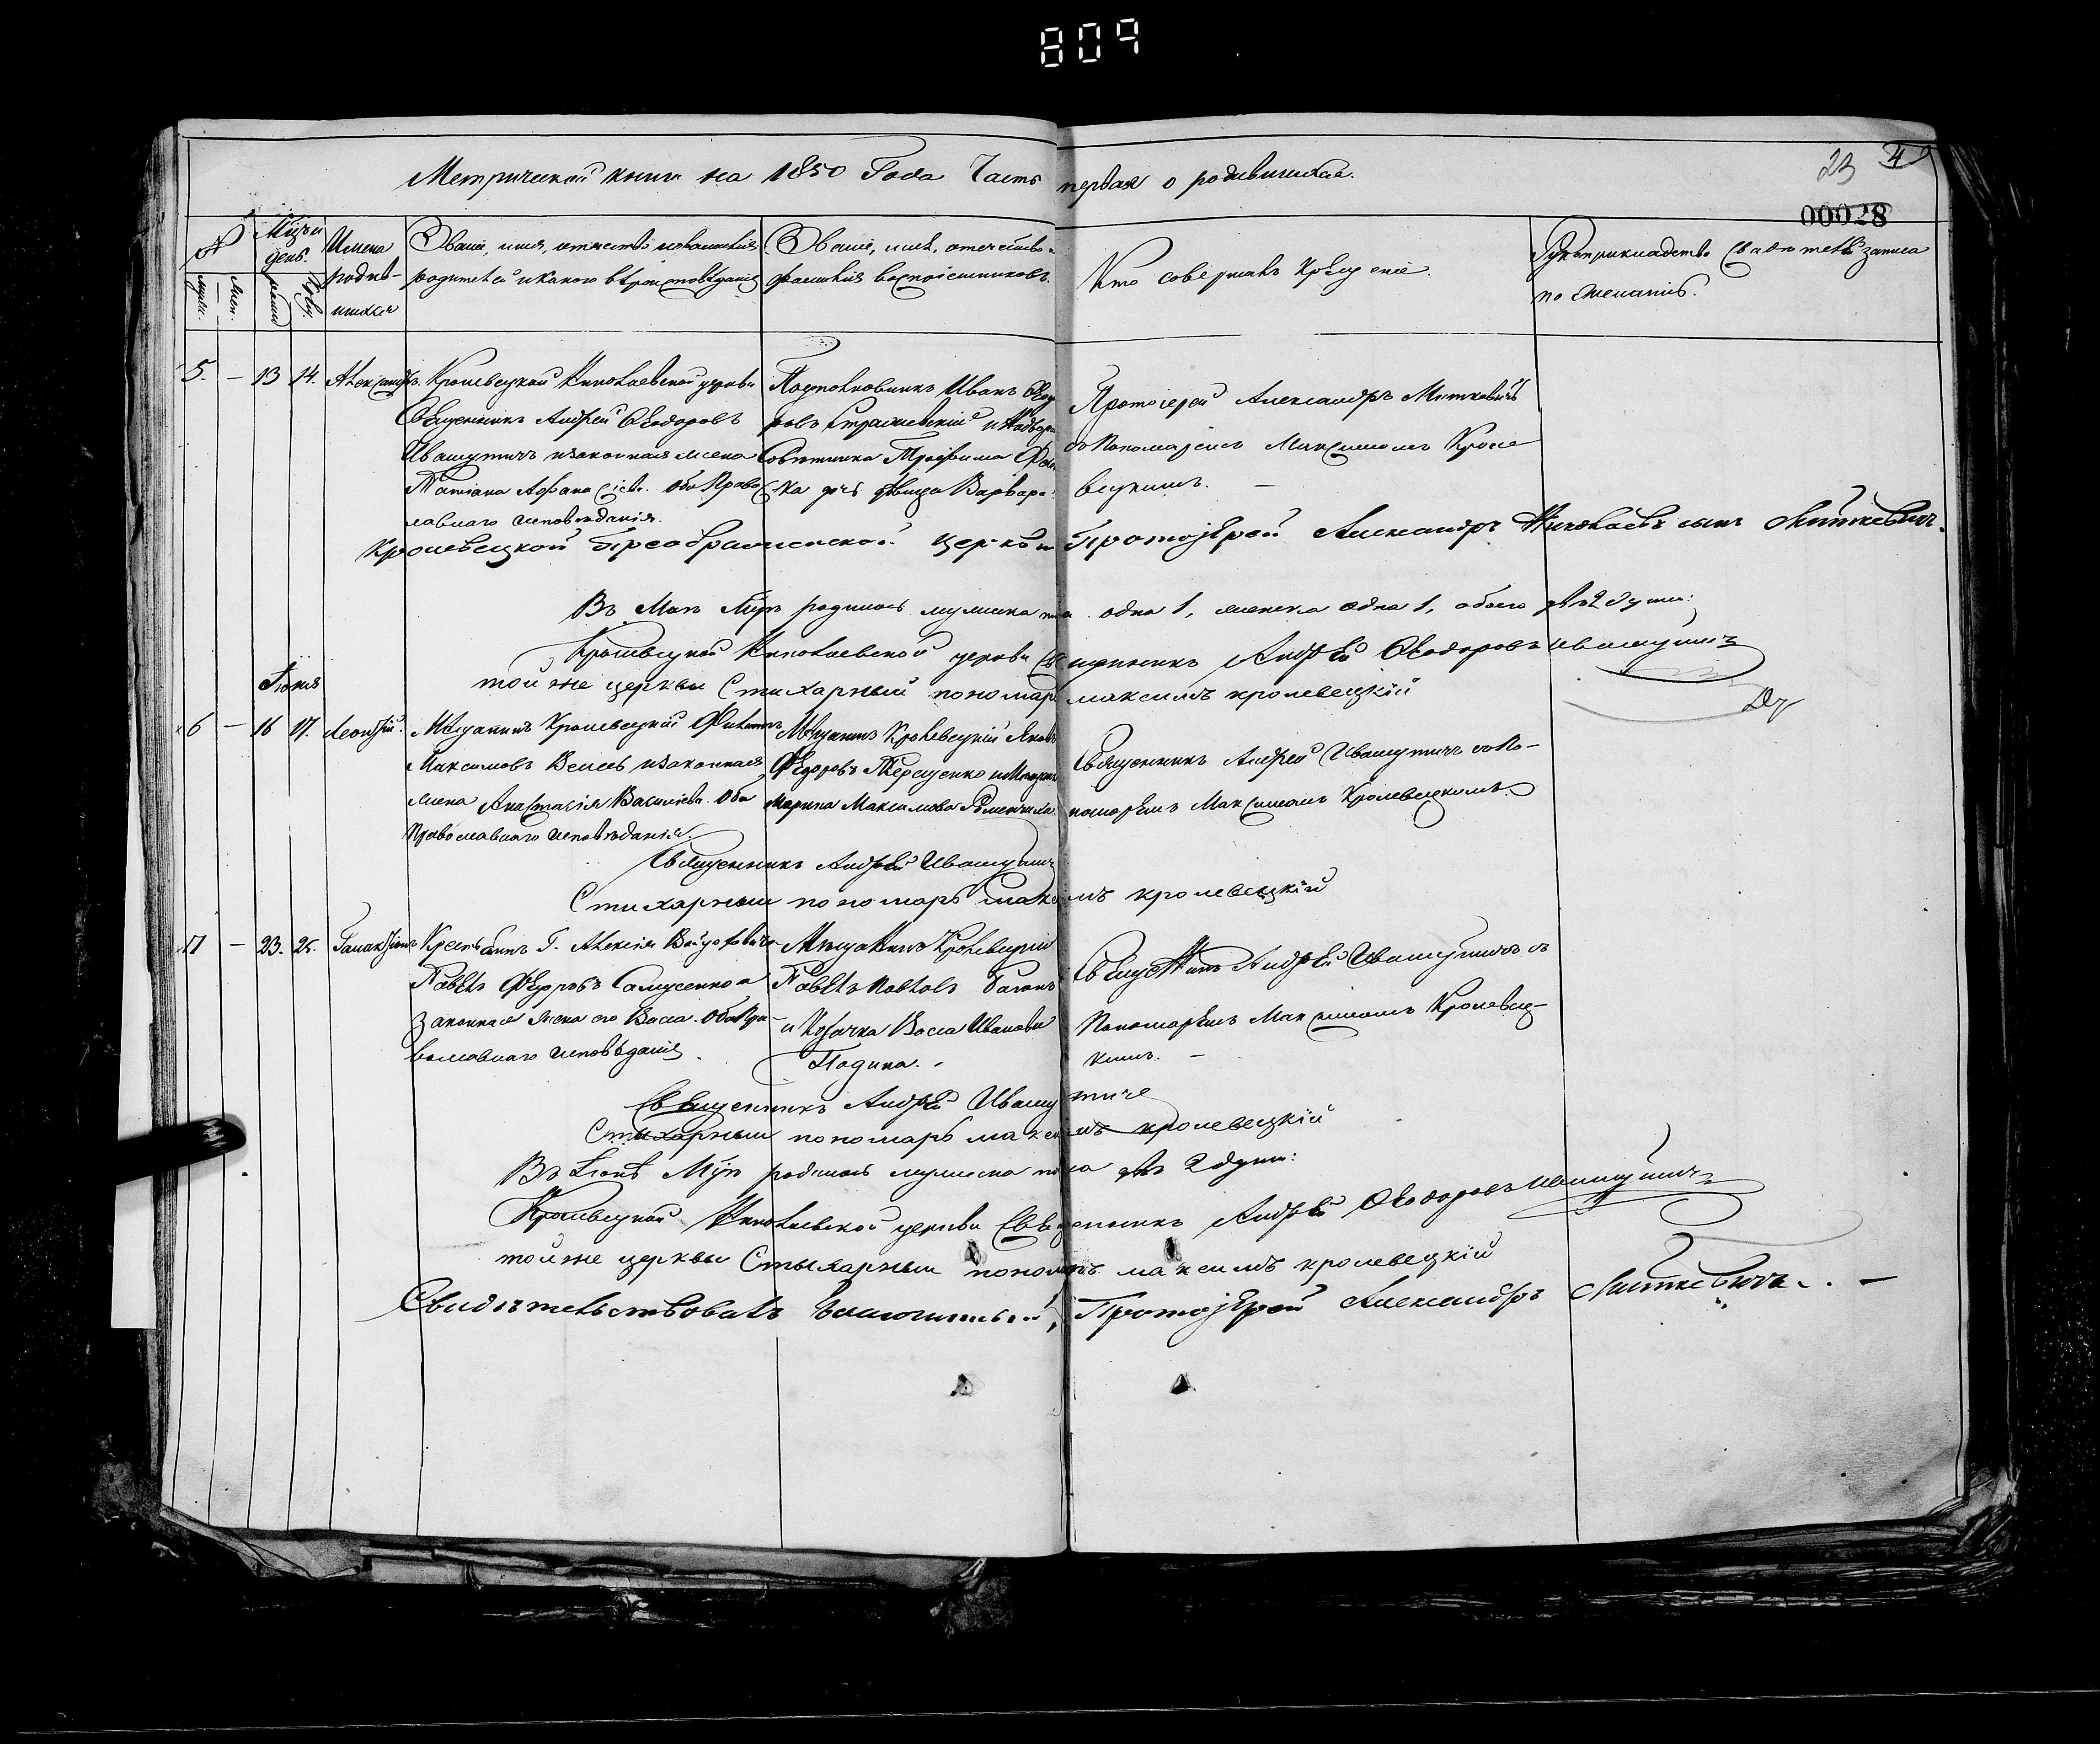 809
Метрической книги на 1850 Года Часть первая о родившихся.
23 4
00028
№
Муж.
Жен.
Мѣсяц день.
рожд.
Имена родив-
шихся
Званіе, имя, отчество и фамилія
родителей и какого вѣроисповѣданія
Званіе, имя, отечество и
фамилія воспріемниковъ.
Кто совершалъ Крещеніе.
Рукоприкладство Свидѣтелей записи
по желанію.
5. — 13 14. Александръ.
Кролевецкой Николаевской церкви
Священникъ Андрей Ѳеодоровъ
Ивашутичъ и законная жена
Татіана Аѳанасіева. Оба Право
славнаго исповѣданія.
Подполковникъ Иванъ Ѳеодо
ровъ Стражевскій и Надворн
Совѣтника Трофима
дочь дѣвица Варвара.
Протоіерей Александръ Миткевичъ
съ Пономаремъ Максимомъ Кроле
вецкимъ. —
Кролевецкой Преображенской Церкви Протоіерей Александръ Николаевъ сынъ Миткевичъ.
Въ Маѣ Мцѣ родилось мужеска пола одна 1, женска одна 1, обоего двѣ 2 души:
Кролевецкой Николаевской церкви Священникъ Андрей Ѳеодоровъ Ивашутичъ
той же церкви Стихарный пономарь максимъ кролевецкій
Іюня
6 — 16 17. Леонтій.
Мещанинъ Кролевецкой Филиппъ
Максимовъ Велесь и законная
жена Анастасія Василіева. Оба
Православнаго исповѣданія.
Мещанинъ Кролевецкій Яковъ
Ѳедоровъ Терещенко и Мещанка
Марина Максимова
Священникъ Андрей Ивашутичъ съ По-
номаремъ Максимомъ Кролевецкимъ.
Священникъ Андрей Ивашутичъ
Стихарный пономарь максимъ кролевецкій
7 — 23. 25.
Крестьянинъ Г. Алексія
Павелъ Ѳедоровъ Самусенко и
Законная жена его Васса. Оба Пра-
вославнаго исповѣданія.
Мѣщанинъ Кролевецкій
Павелъ Павловъ
и Козачка Васса Иванова
Священникъ Андрей Ивашутичъ съ
Пономаремъ Максимомъ Кролевец-
кимъ. —
Священникъ Андрей Ивашутичъ
Стыхарный пономарь максимъ кролевецкій
Въ Іюнѣ Мцѣ родилось мужеска пола двѣ 2 души:
Кролевецкой Николаевской церкви Священникъ Андрей Ѳеодоровъ Ивашутичъ
той же церквы Стыхарный пономарь максимъ кролевецкій
Свидѣтельствовалъ Благочинный, Протоіерей Александръ Миткевичъ. —